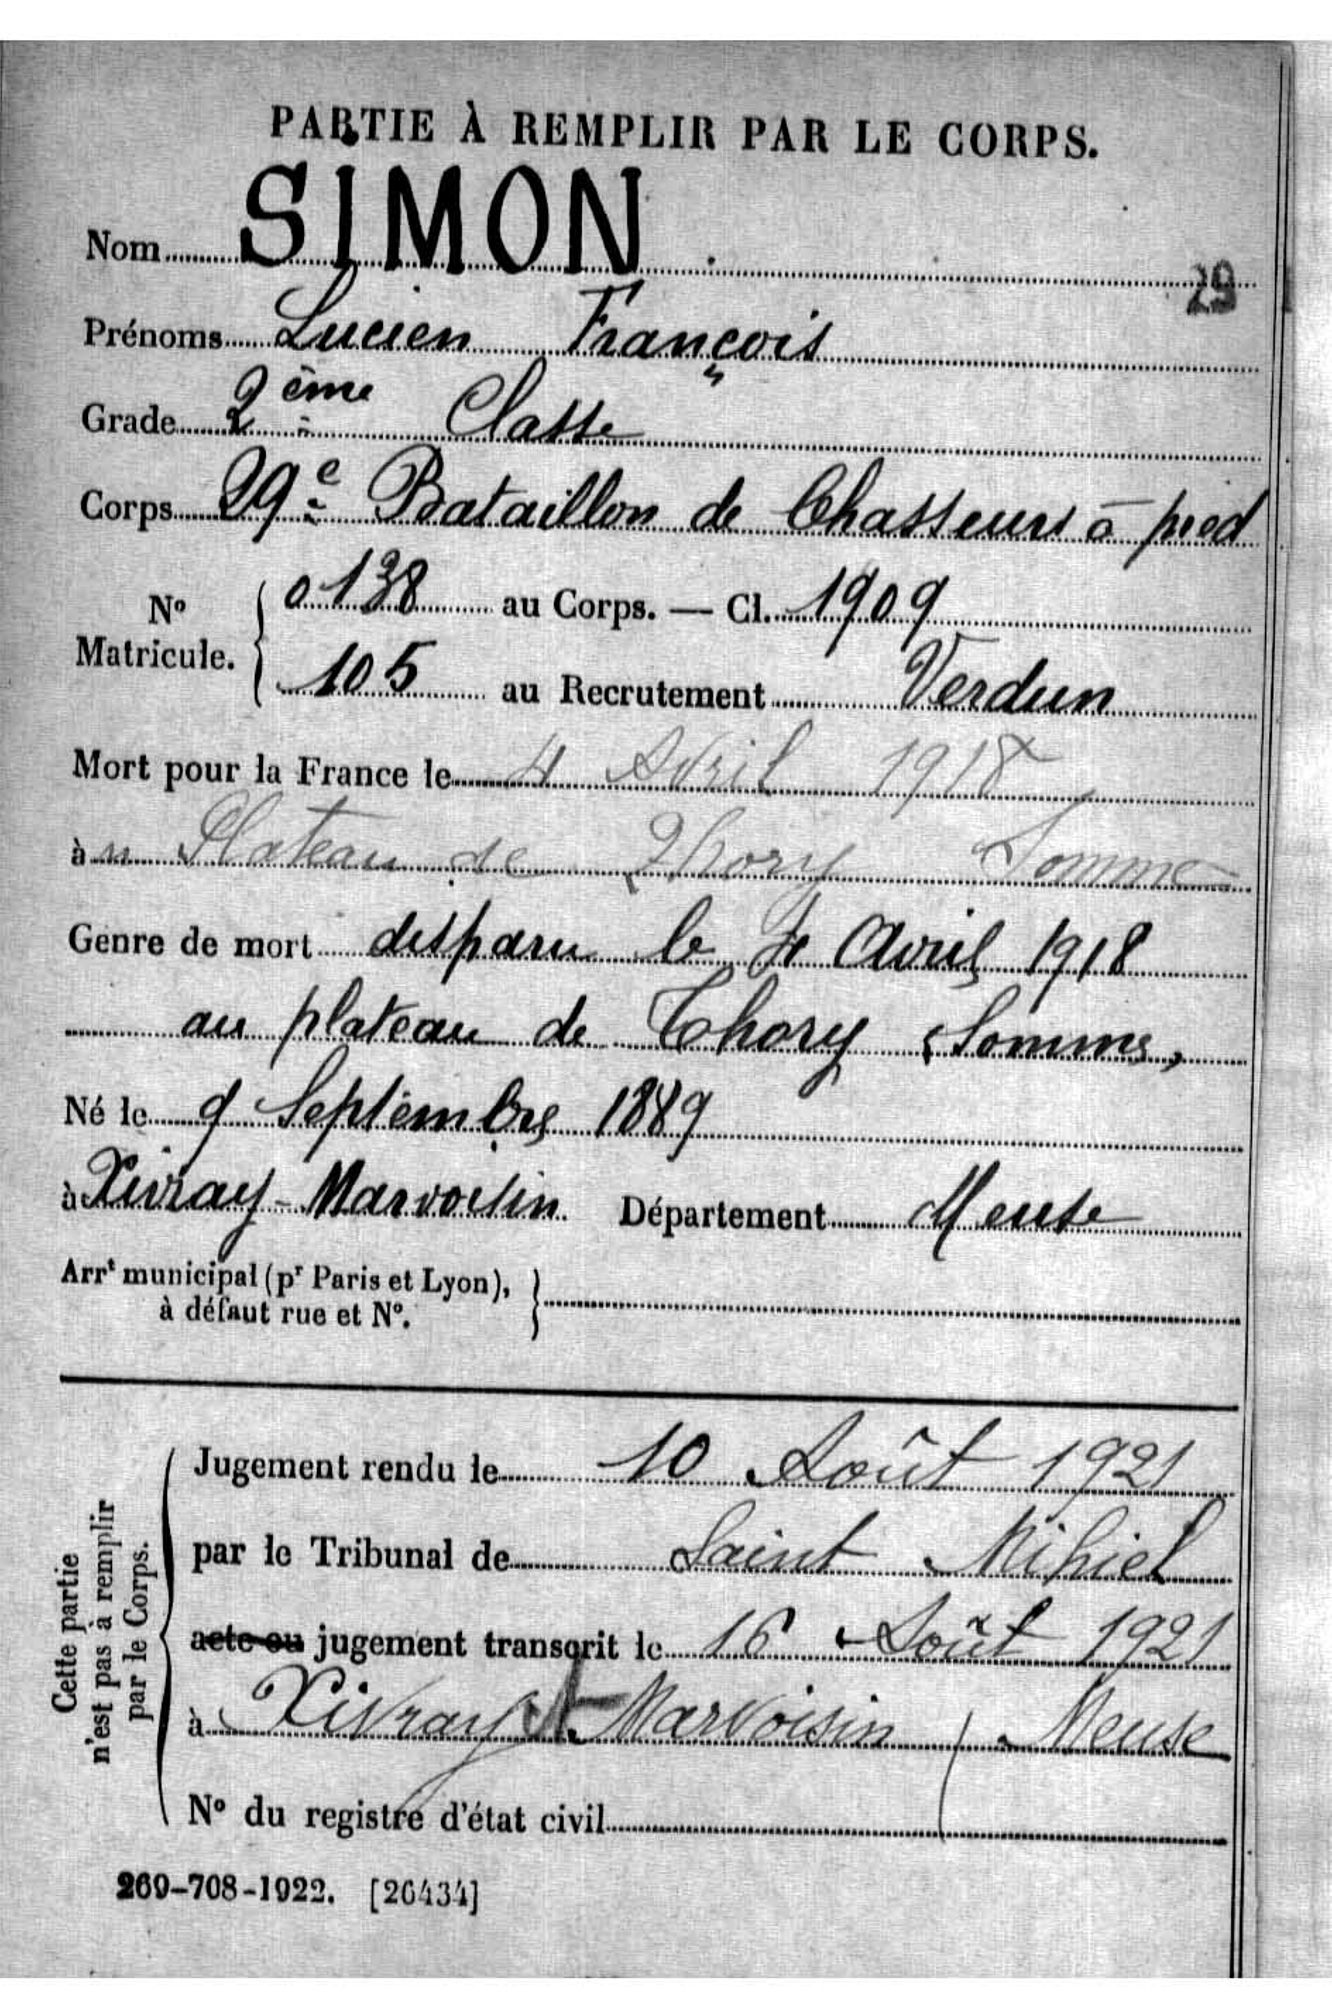 PARTIE À REMPLIR PAR LE CORPS.
Nom SIMON
29
Prénoms Lucien François
Grade 2ème Classe
Corps 29e Bataillon de Chasseurs à pied
No Matricule. { 0138 au Corps. — Cl. 1909
105 au Recrutement Verdun
Mort pour la France le 4 Avril 1918
à u Plateau de Thory Somme
Genre de mort disparu le 4 Avril 1918
au plateau de Thory (Somme,
Né le 9 Septembre 1889
à Xivray-Marvoisin Département Meuse
Arrt municipal (pr Paris et Lyon),
à défaut rue et No. }
Cette partie
n'est pas à remplir
par le Corps.
Jugement rendu le 10 Août 1921
par le Tribunal de Saint Mihiel
acte ou jugement transcrit le 16 Août 1921
à Xivray et Marvoisin / Meuse
No du registre d'état civil
269-708-1922. [26434]